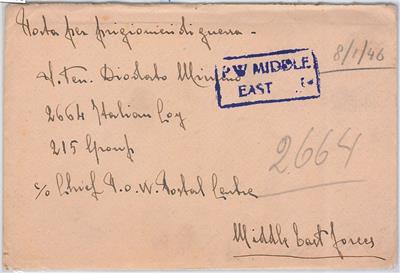 Posta per prigionieri di guerra -
8/1/46
S. Ten. Diodato
P W MIDDLE
EAST
2664 Italian Coy
215 Group
2664
c/o Chief P.o.W. Postal Centre
Middle East Forces